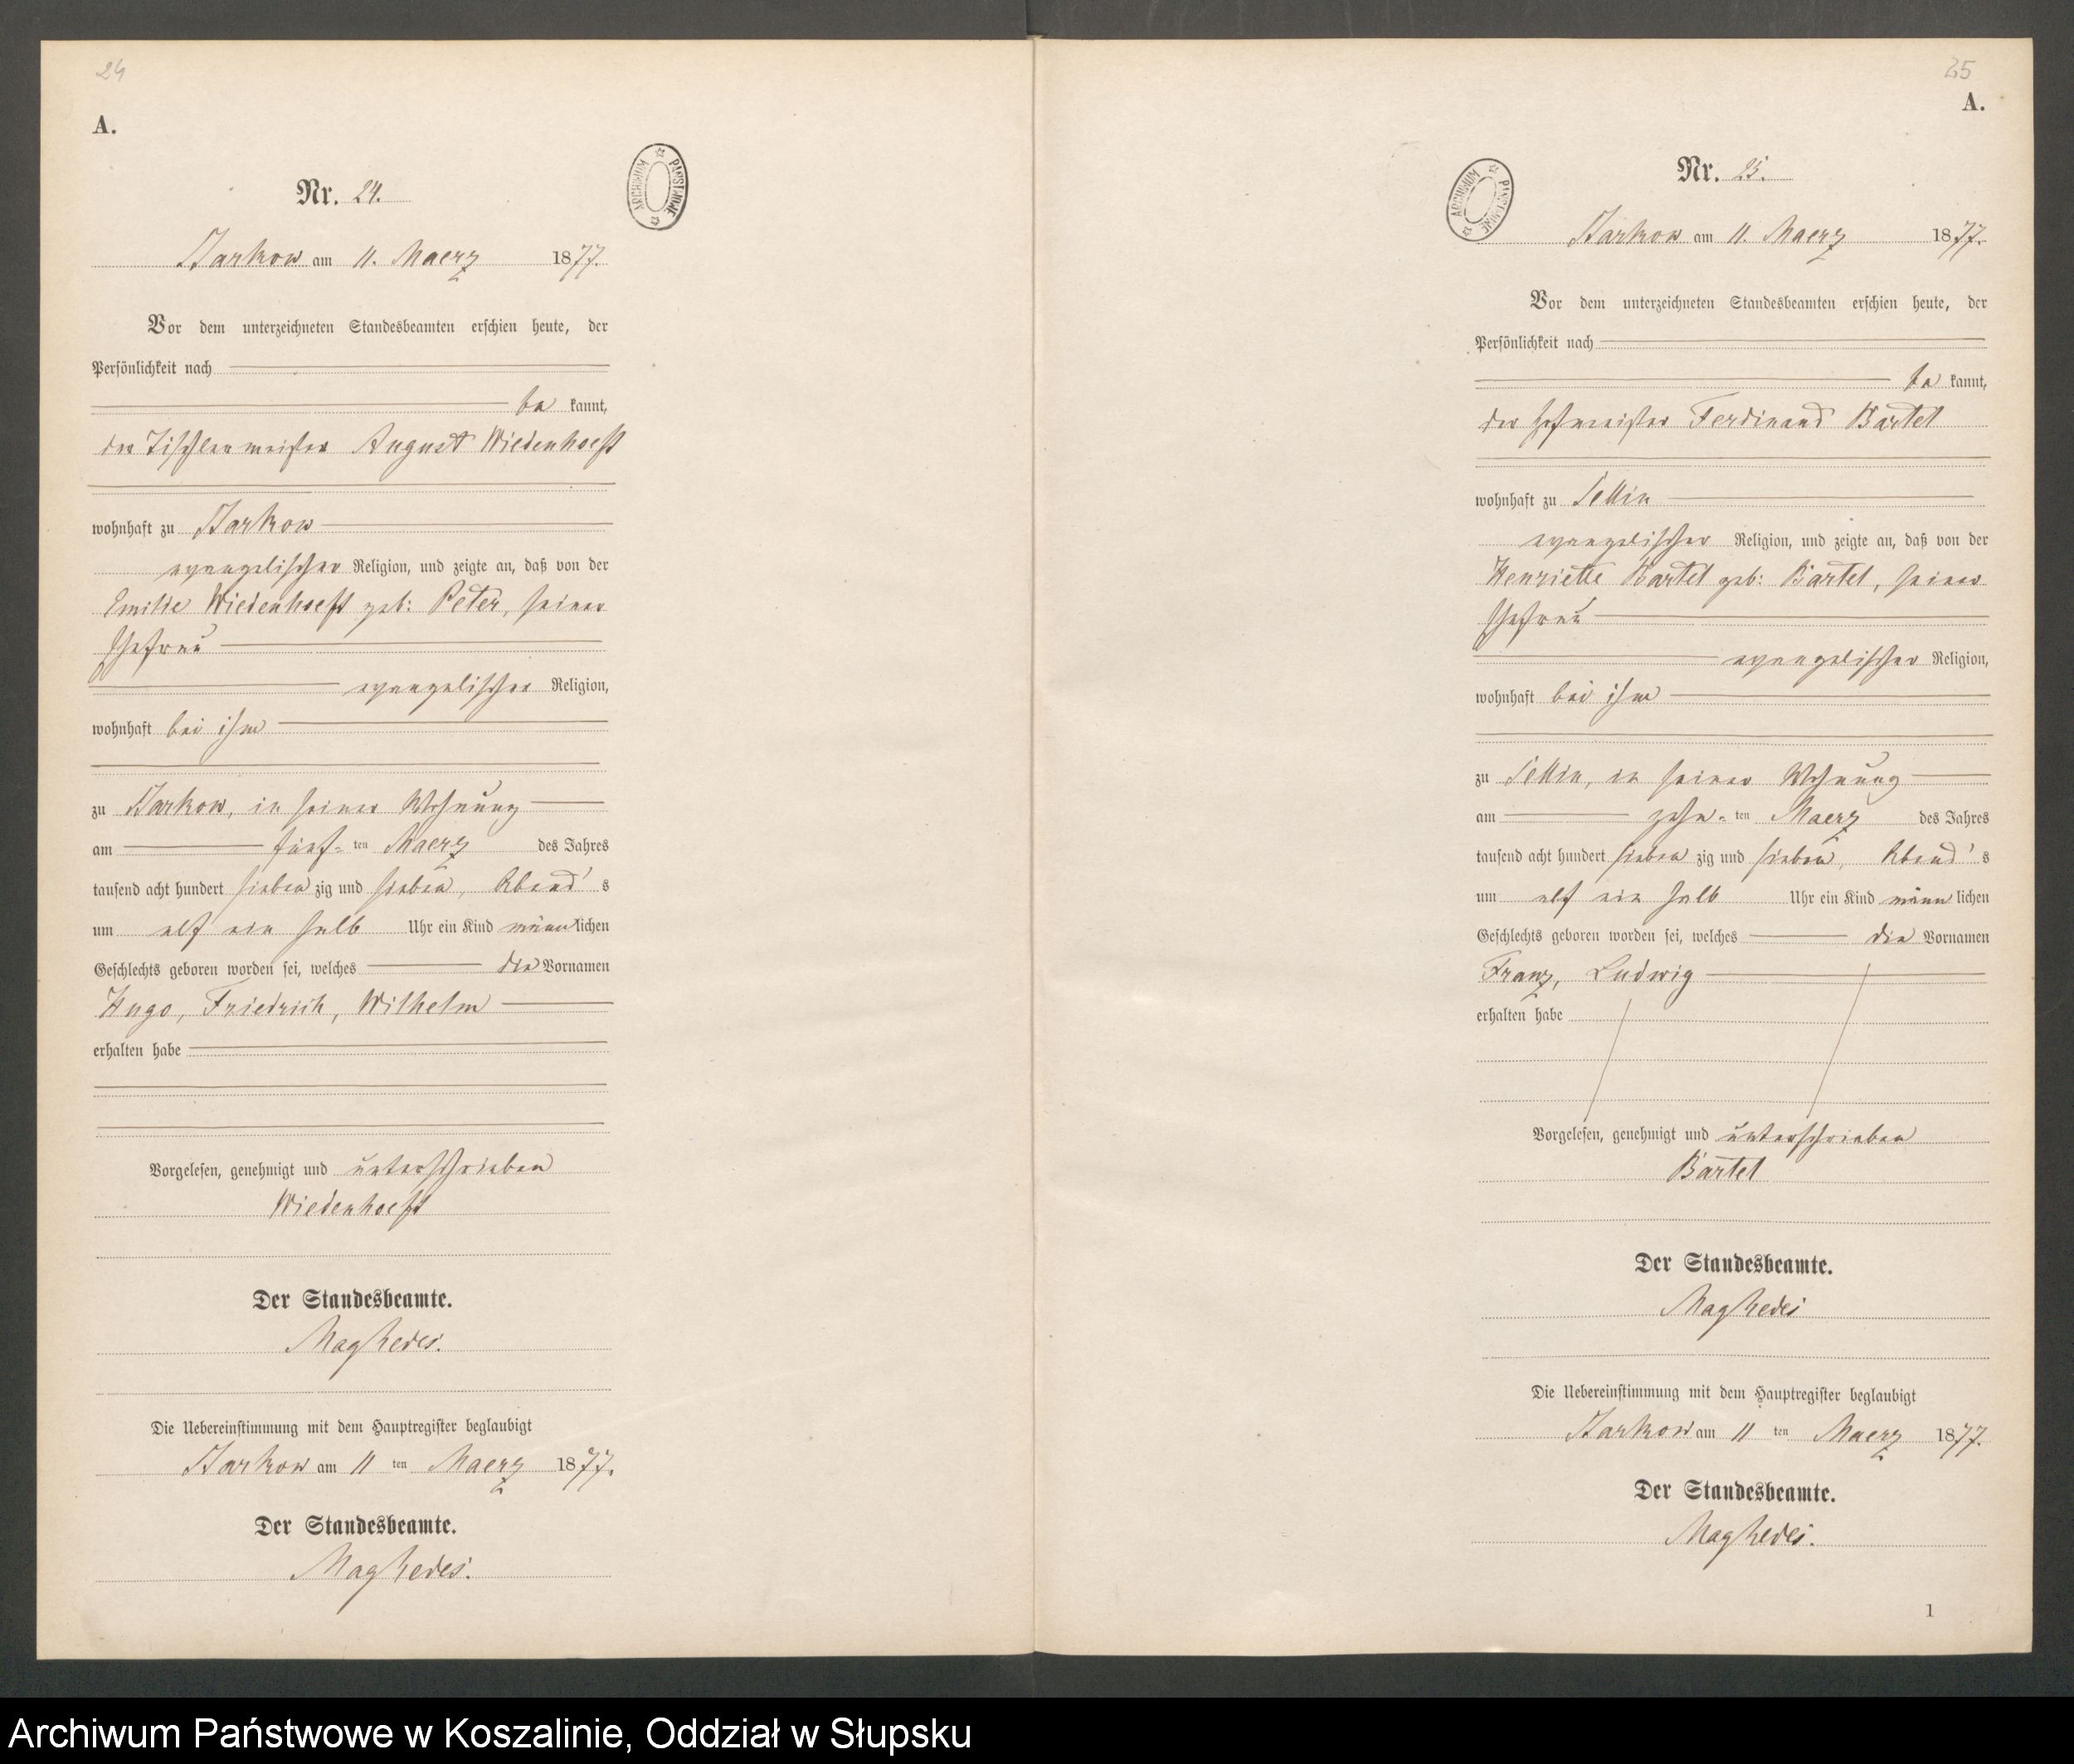 24
A.
Nr. 24.
ARCHIWUM PAŃSTWOWE
Starkow am 11. Maerz 1877.
Vor dem unterzeichneten Standesbeamten erschien heute, der
Persönlichkeit nach
be kannt,
der Tischlermeister August Wiedenhoeft
wohnhaft zu Starkow
evangelischer Religion, und zeigte an, daß von der
Emilie Wiedenhoeft geb: Peter, seiner
Ehefrau
evangelischer Religion,
wohnhaft bei ihm
zu Starkow, in seiner Wohnung
am fünf- ten Maerz des Jahres
tausend acht hundert sieben zig und sieben, Abend's
um elf ein halb Uhr ein Kind männlichen
Geschlechts geboren worden sei, welches die Vornamen
Hugo, Friedrich, Wilhelm
erhalten habe
Vorgelesen, genehmigt und unterschrieben
Wiedenhoeft
Der Standesbeamte.
Die Uebereinstimmung mit dem Hauptregister beglaubigt
Starkow am 11 ten Maerz 1877.
Der Standesbeamte.
25
A.
Nr. 25.
ARCHIWUM PAŃSTWOWE
Starkow am 11. Maerz 1877.
Vor dem unterzeichneten Standesbeamten erschien heute, der
Persönlichkeit nach
be kannt,
der Hofmeister Ferdinand Bartel
wohnhaft zu
evangelischer Religion, und zeigte an, daß von der
Henriette Bartel geb: Bartel, seiner
Ehefrau
evangelischer Religion,
wohnhaft bei ihm
zu in seiner Wohnung
am zehn- ten Maerz des Jahres
tausend acht hundert sieben zig und sieben, Abend's
um elf ein halb Uhr ein Kind männ lichen
Geschlechts geboren worden sei, welches die Vornamen
Franz, Ludwig
erhalten habe
Vorgelesen, genehmigt und unterschrieben
Bartel
Der Standesbeamte.
Die Uebereinstimmung mit dem Hauptregister beglaubigt
Starkow am 11 ten Maerz 1877.
Der Standesbeamte.
1
Archiwum Państwowe w Koszalinie, Oddział w Słupsku